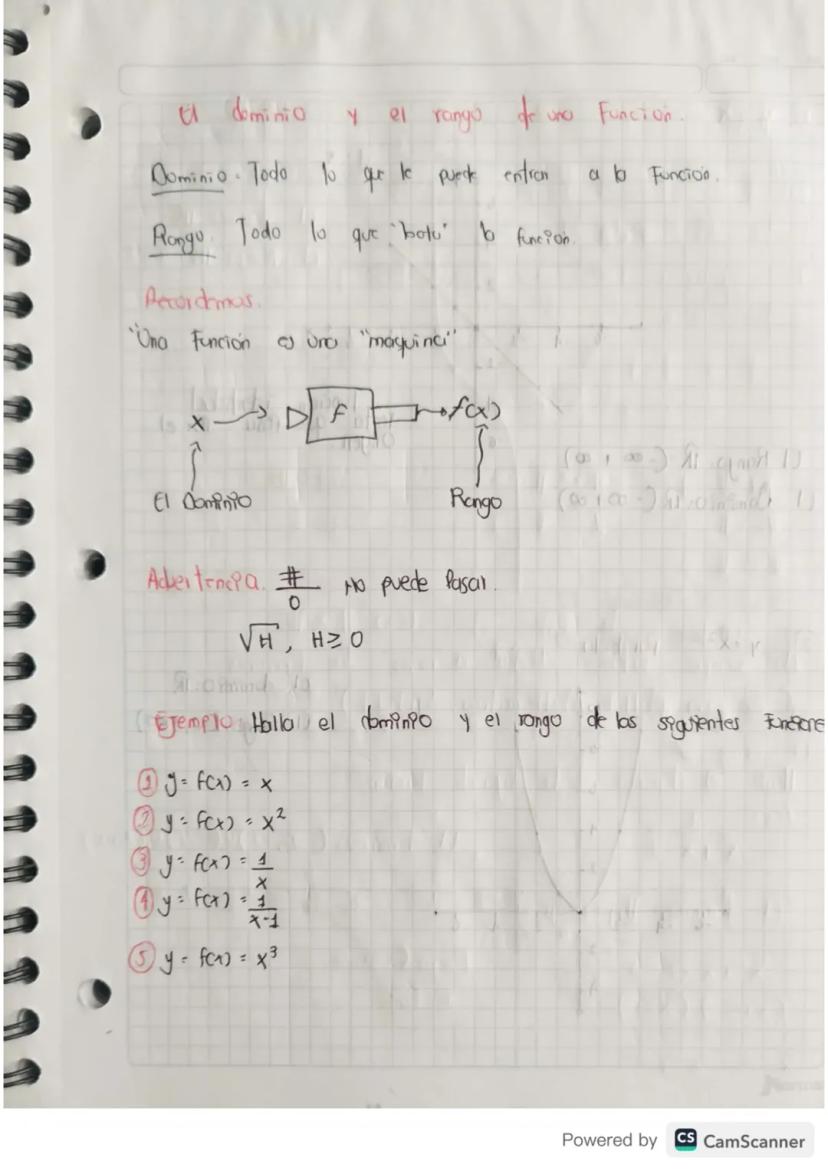 El dominio y el rango de una Función.
Dominio. Todo lo que le puede entrar a la Función.
Rango. Todo lo que "bota" la función.
Recordemos.
"Una Función es una "maquina"
x → ▷ F → f(x)
El Dominio Rango
Advertencia. #/0 No puede Pasar.
√H, H ≥ 0
Ejemplo: Halla el dominio y el rango de las siguientes Funcione
① y = f(x) = x
② y = f(x) = x²
③ y = f(x) = 1/x
④ y = f(x) = 1/x-1
⑤ y = f(x) = x³
Powered by CS CamScanner